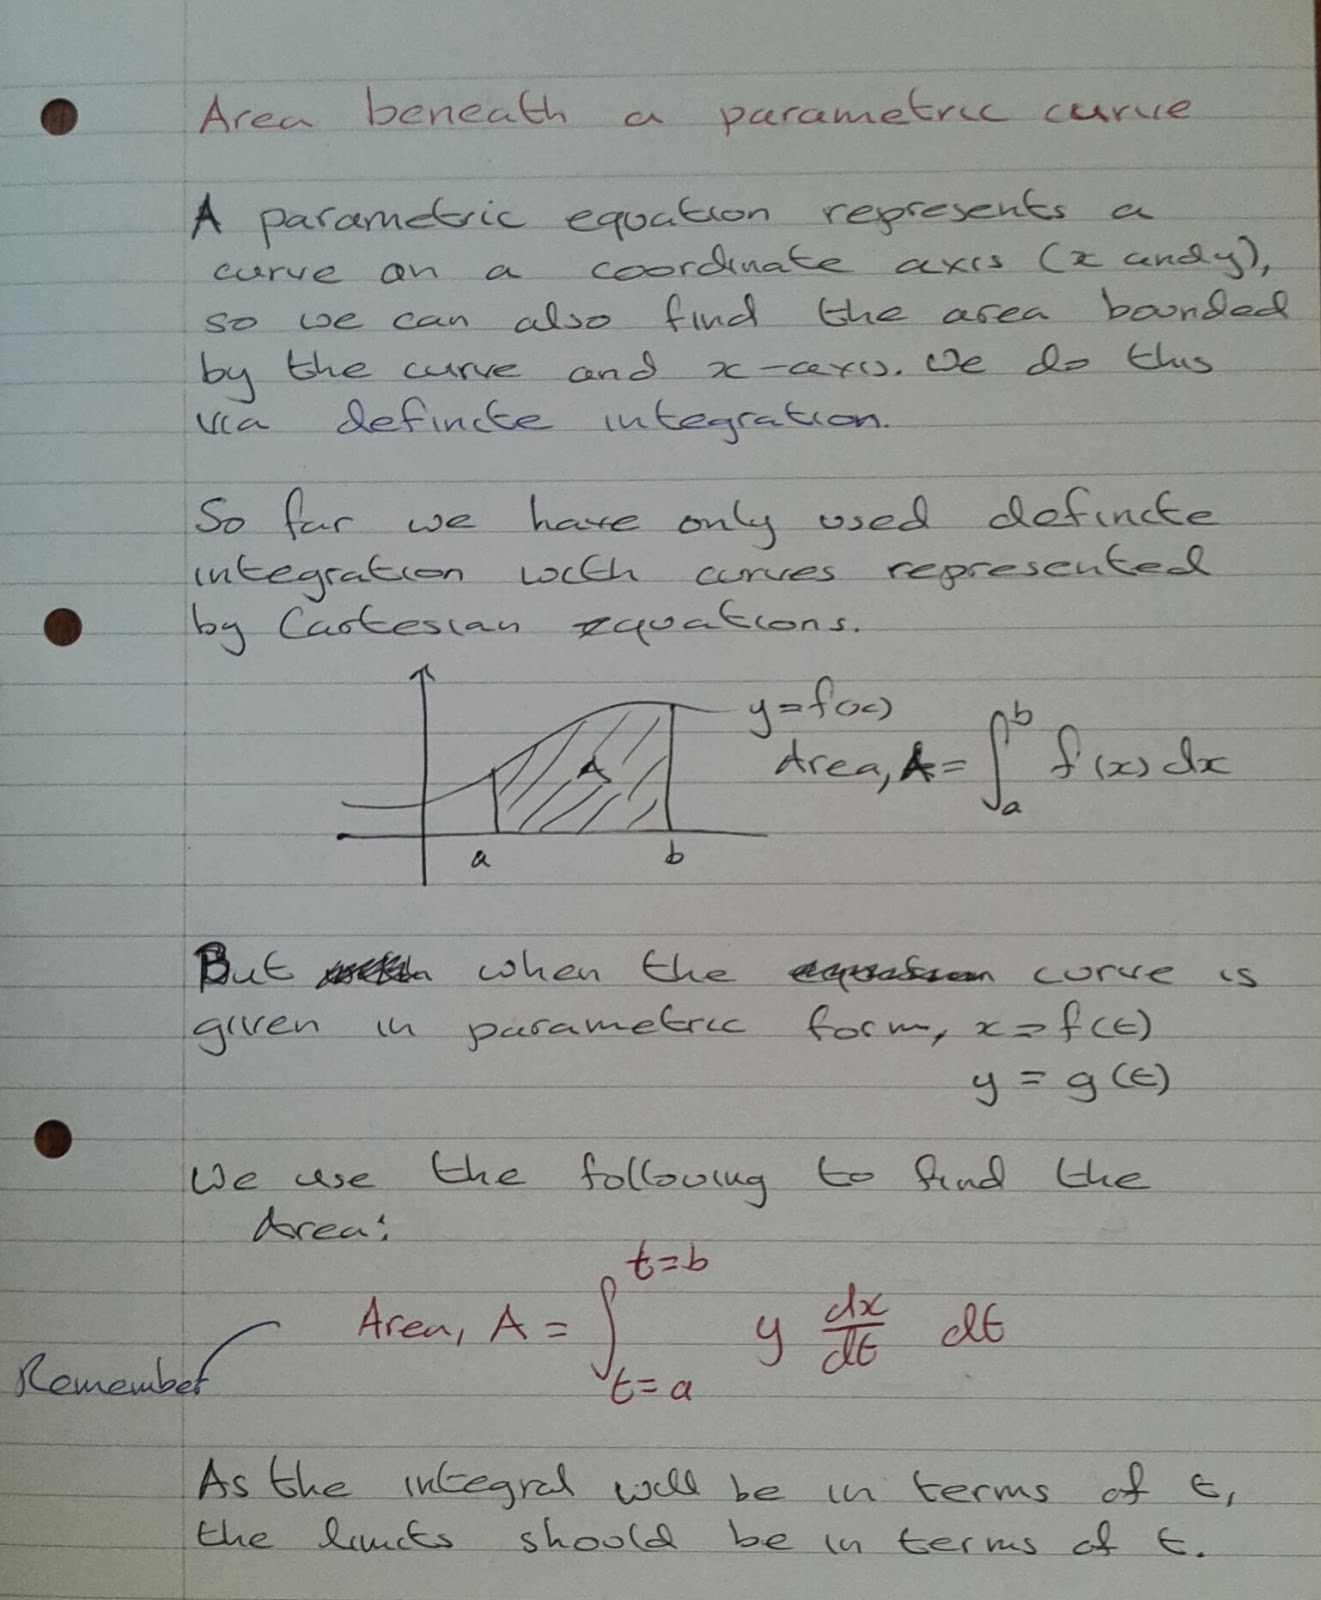 Area beneath a parametric curve
A parametric equation represents a
curve on a coordinate axis (x and y),
so we can also find the area bounded
by the curve and x-axis. We do this
via definite integration.
So far we have only used definite
integration with curves represented
by Cartesian equations.
y=f(x)
Area, A = ∫_a^b f(x) dx
A
a b
But when the curve is
given in parametric form, x = f(t)
y = g(t)
We use the following to find the
Area:
Area, A = ∫_{t=a}^{t=b} y dx/dt dt
Remember
As the integral will be in terms of t,
the limits should be in terms of t.